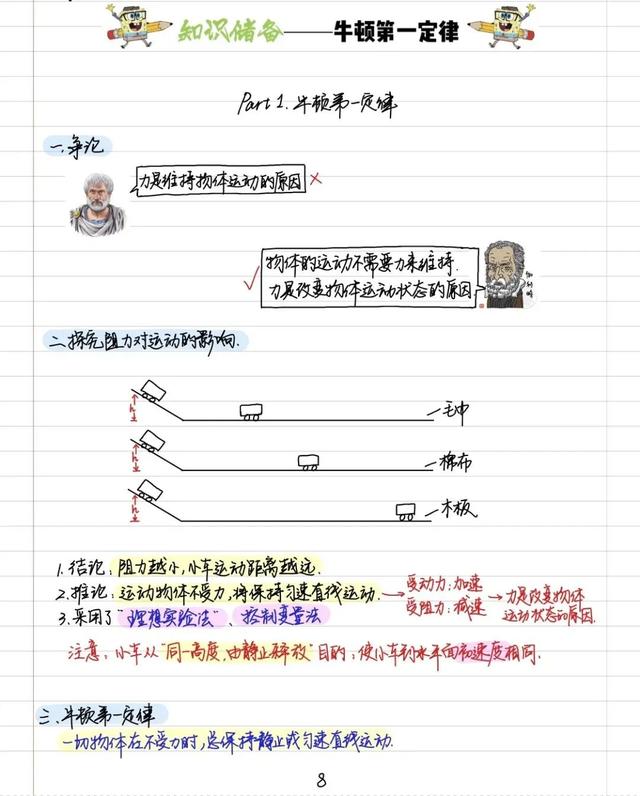 知识储备——牛顿第一定律
Part 1. 牛顿第一定律
一.争论
力是维持物体运动的原因 ×
物体的运动不需要力来维持.
✓ 力是改变物体运动状态的原因
二.探究阻力对运动的影响.
h 毛巾
h 棉布
h 木板
1.结论:阻力越小,小车运动距离越远.
2.推论:运动物体不受力,将保持匀速直线运动.
→受动力:加速
受阻力:减速
→力是改变物体
运动状态的原因.
3.采用了"理想实验法"、控制变量法
注意:小车从"同一高度,由静止释放"目的:使小车到水平面初速度相同.
三.牛顿第一定律
一切物体在不受力时,总保持静止或匀速直线运动.
8